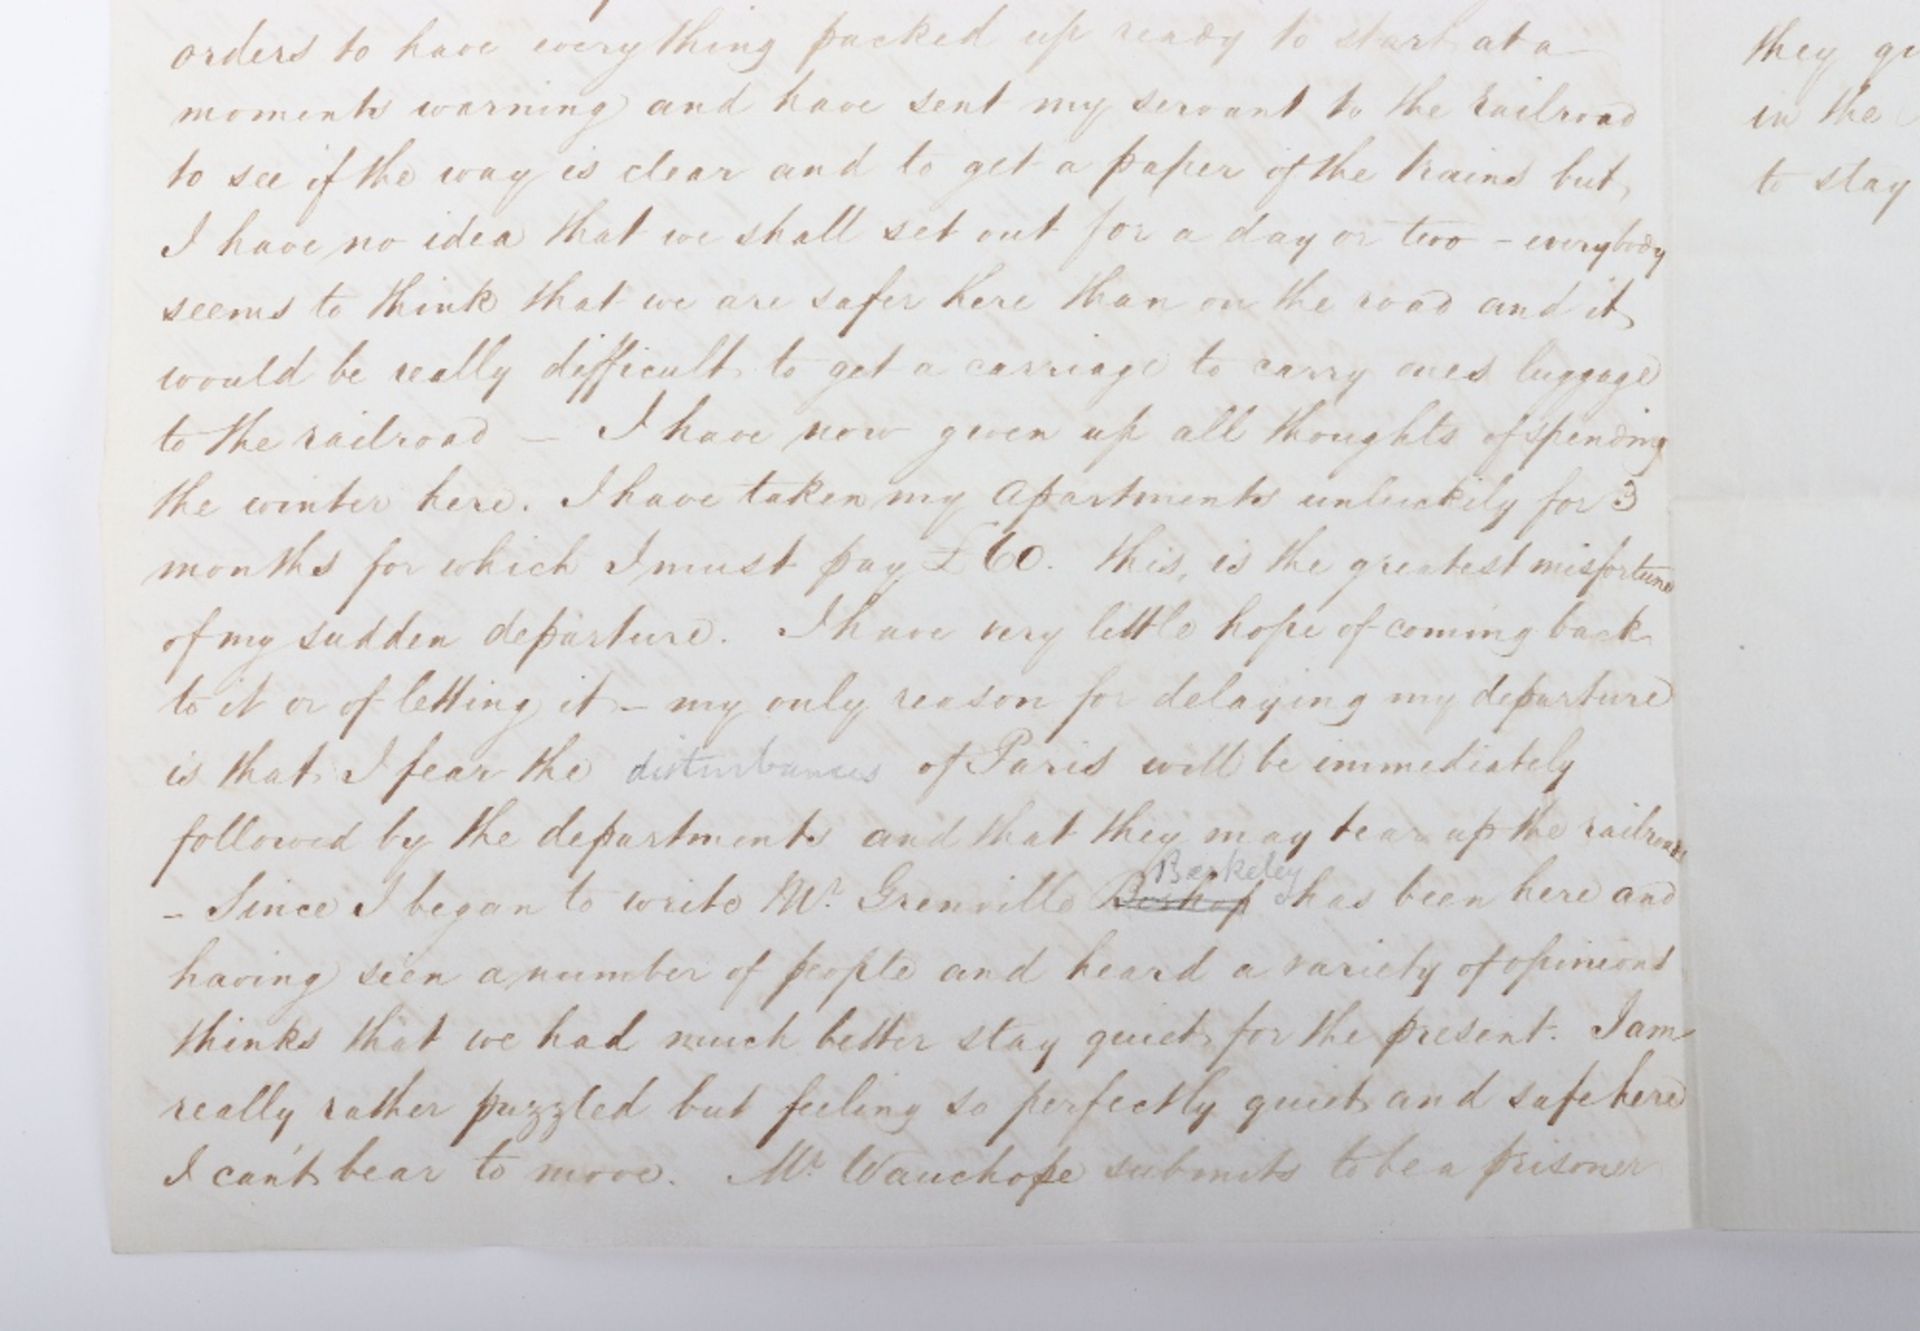 orders to have everything packed up ready to start at a
moments warning and have sent my servant to the railroad
to see if the way is clear and to get a paper of the trains but
I have no idea that we shall set out for a day or two – everybody
seems to think that we are safer here than on the road and it
would be really difficult to get a carriage to carry ones luggage
to the railroad – I have now given up all thoughts of spending
the winter here. I have taken my apartments unluckily for 3
months for which I must pay £60. this, is the greatest misfortune
of my sudden departure. I have very little hope of coming back
to it or of letting it – my only reason for delaying my departure
is that I fear the disturbances of Paris will be immediately
followed by the departments and that they may tear up the railroad
Berkeley
– Since I began to write Mr. Grenville Boshop has been here and
having seen a number of people and heard a variety of opinions
thinks that we had much better stay quiet for the present. I am
really rather puzzled but feeling so perfectly quiet and safe here
I can't bear to move. Mr Wauchope submits to be a prisoner
they
in the
to stay